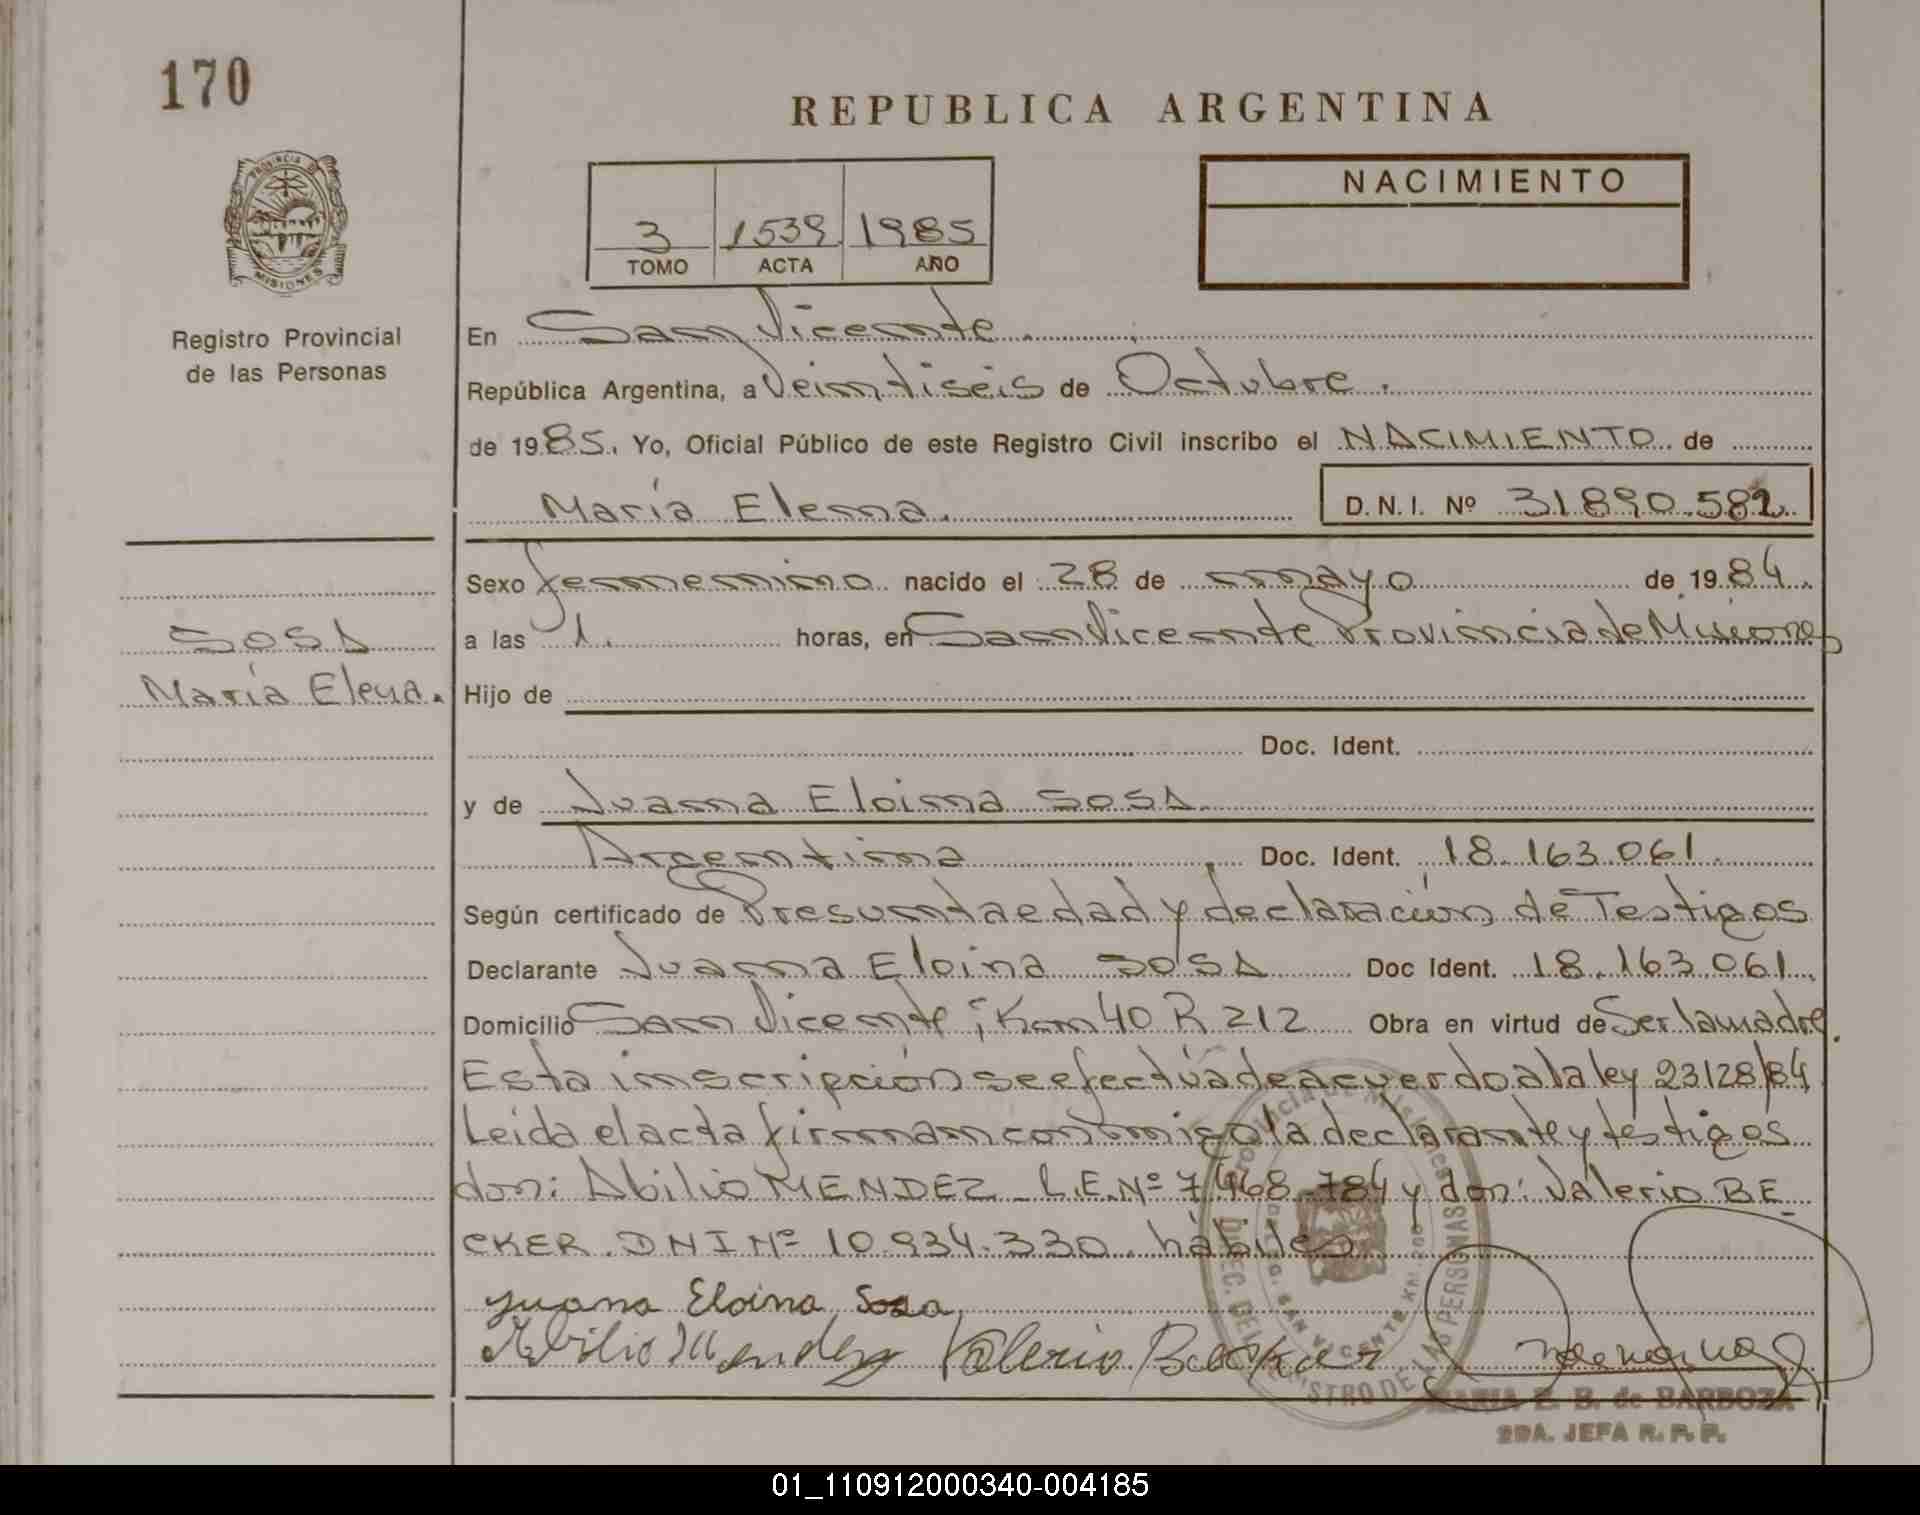 170
REPUBLICA ARGENTINA
PROVINCIA DE
MISIONES
Registro Provincial
de las Personas
3 1539 1985
TOMO ACTA AÑO
NACIMIENTO
En San Vicente.
República Argentina, a Veintiseis de Octubre.
de 1985. Yo, Oficial Público de este Registro Civil inscribo el NACIMIENTO de
María Elena. D.N.I. Nº 31.890.582
Sexo femenino nacido el 28 de mayo de 1984.
SOSA
a las 1. horas, en San Vicente Provincia de Misiones
María Elena.
Hijo de
Doc. Ident.
y de Juana Eloina SOSA
Argentina Doc. Ident. 18.163.061.
Según certificado de Presunta edad y declaración de Testigos
Declarante Juana Eloina SOSA Doc Ident. 18.163.061.
Domicilio San Vicente, Km 40 R 212 Obra en virtud de Ser la madre.
Esta inscripción se efectúa de acuerdo a la ley 23128/84
Leida el acta firman conmigo la declarante y testigos
don: Abilio MENDEZ L.E.Nº 7.468.784 y don: Valerio BE
CKER. DNI Nº 10.934.330 hábiles
Juana Eloina Sosa
Abilio Mendez Valerio Becker
MARIA E. B. de BARBOZA
2DA. JEFA R. P. P.
01_110912000340-004185